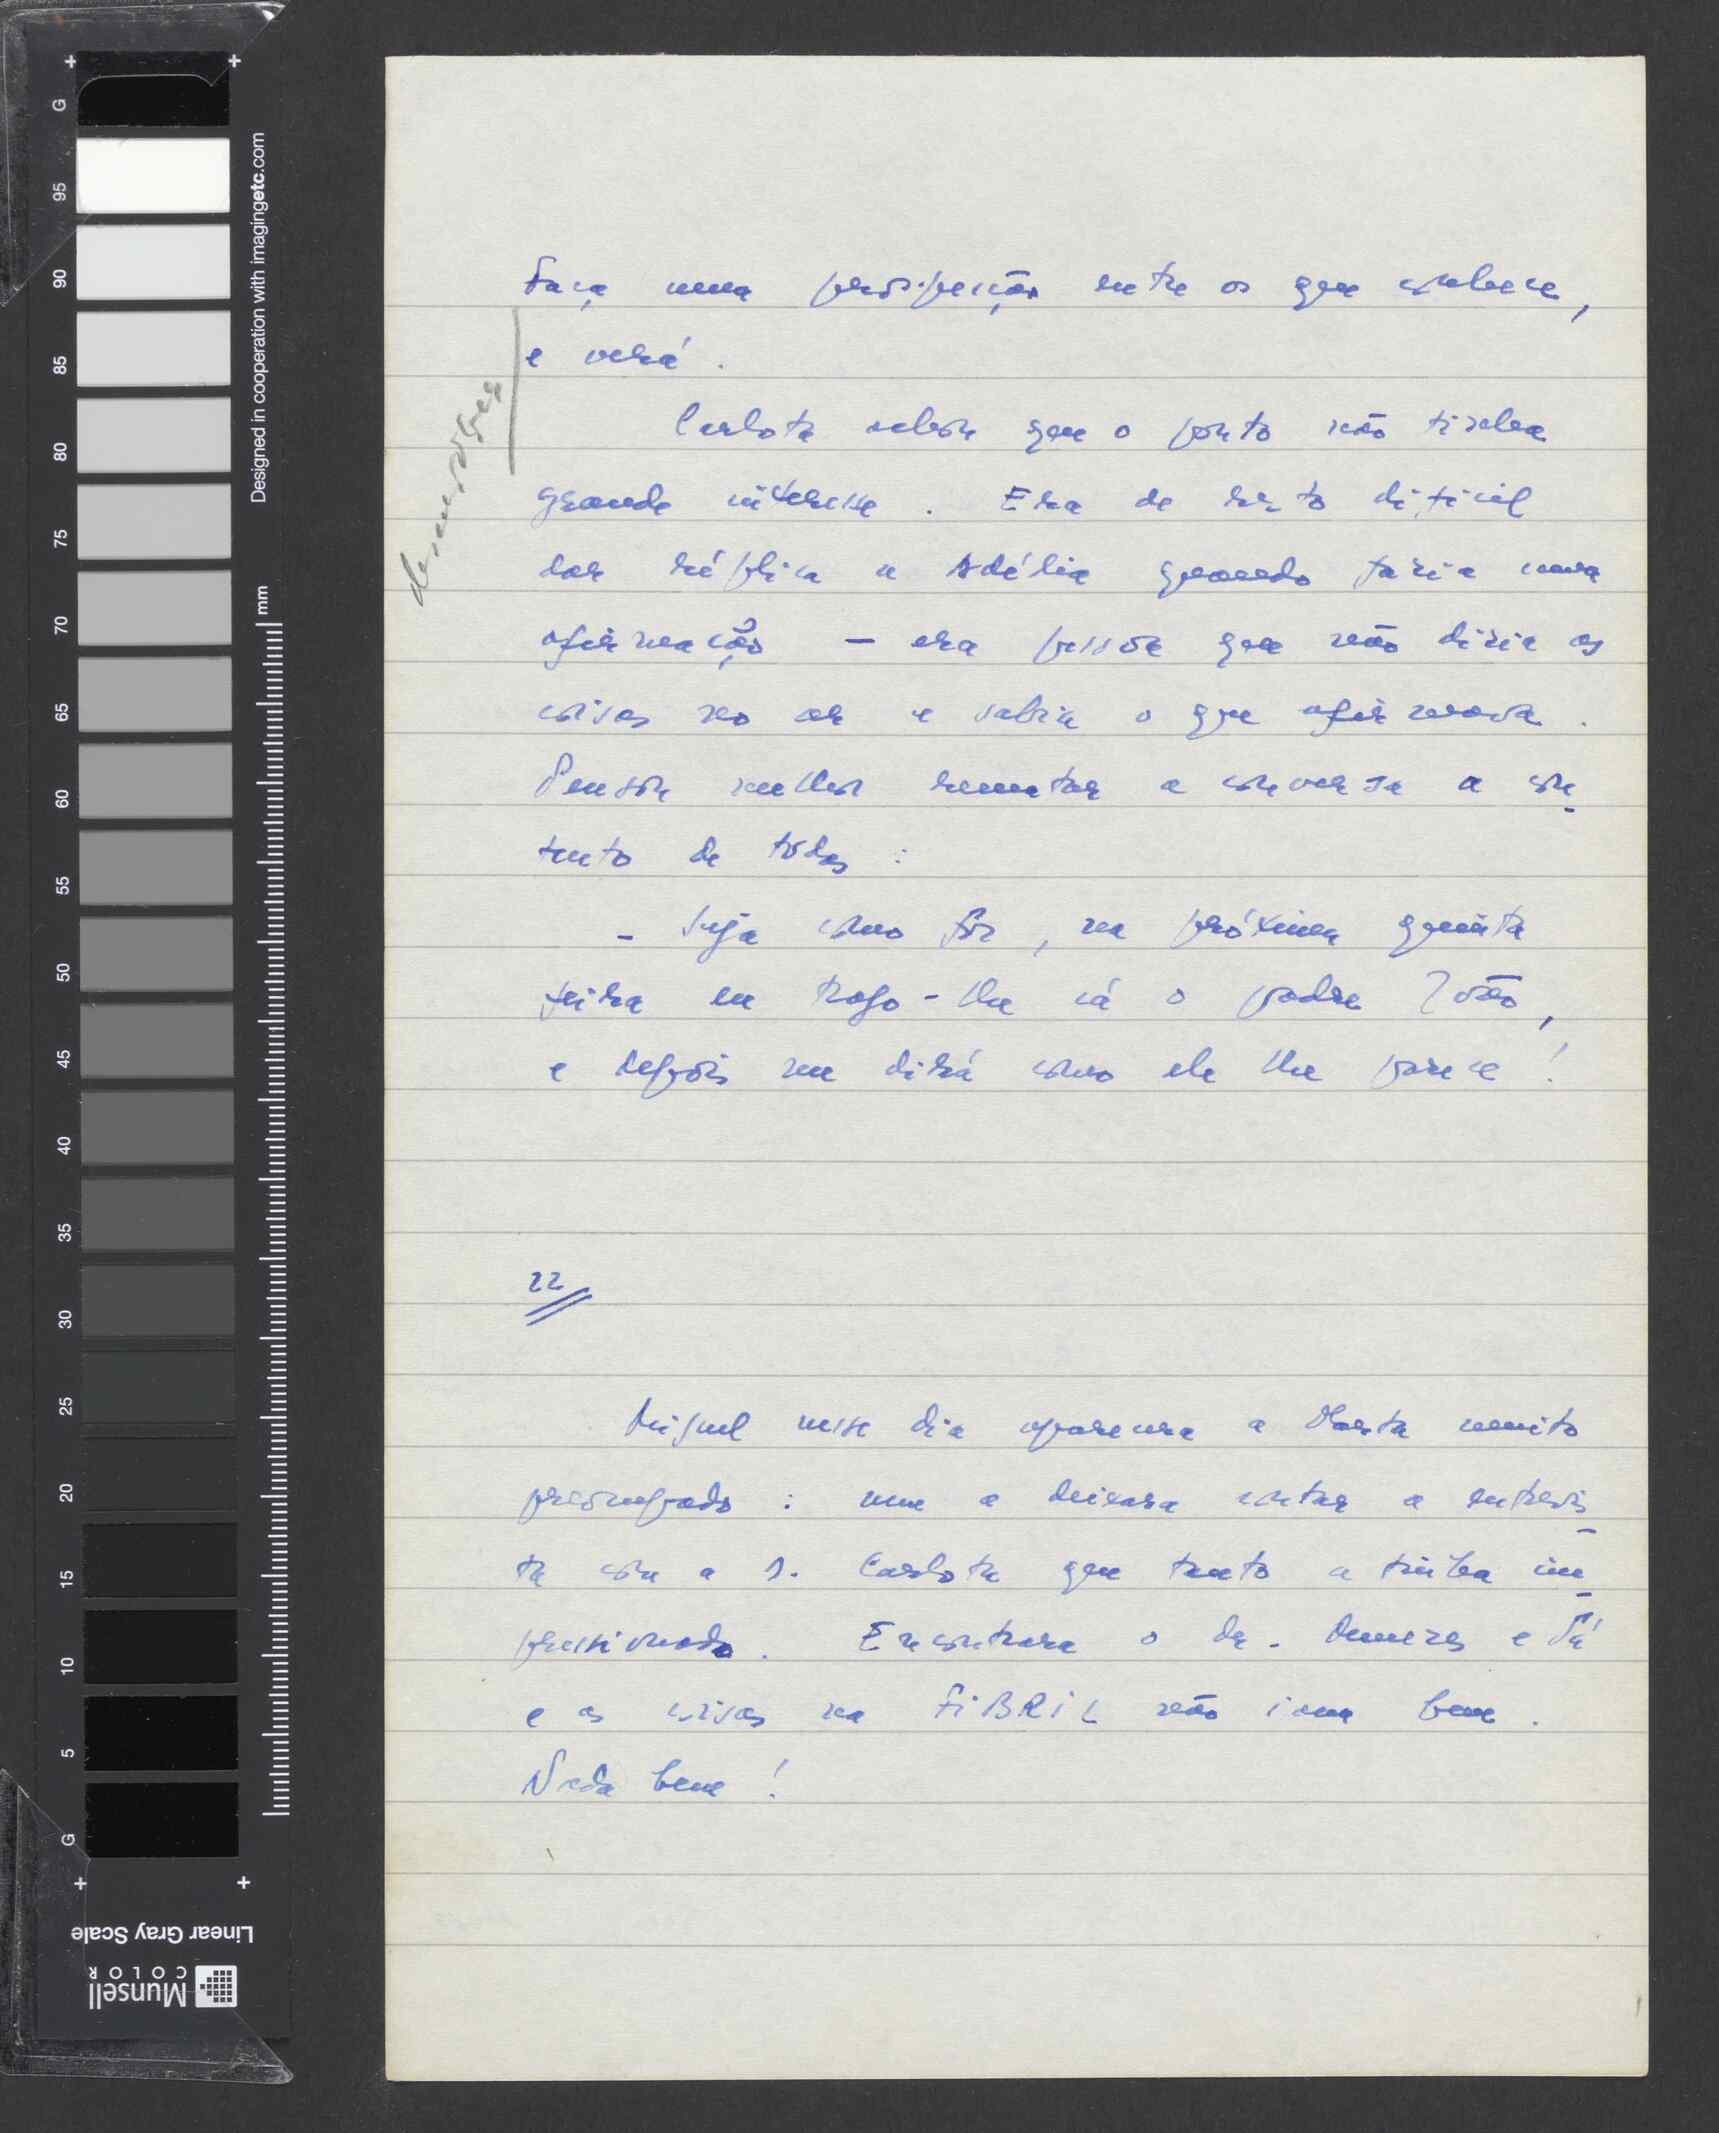 Faça uma prospecção entre os que conhece,
e verá.
Carlota achou que o ponto não tinha
grande interesse. Era de resto difícil
dar réplica a Adélia quando fazia uma
afirmação — era pessoa que não dizia as
coisas no ar e sabia o que afirmava.
Pensou melhor rematar a conversa a con-
tento de todos:
- Seja como fôr, na próxima quinta
feira eu trago-lhe cá o padre João,
e depois me dirá como ele lhe parece!
desenvolver
22
Miguel nesse dia aparecera a Marta muito
preocupado: nem a deixara contar a entrevis-
ta com a D. Carlota que tanto a tinha im-
pressionado. Encontrara o dr. Menezes e Sá
e as coisas na FIBRIL não iam bem.
Nada bem!
G
95
90
85
80
75
70
65
60
55
50
45
40
35
30
25
20
15
10
5
G
Designed in cooperation with imagingetc.com
mm
Linear Gray Scale
Munsell
COLOR